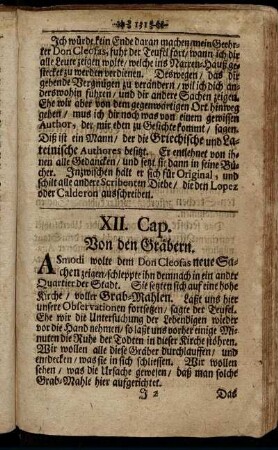 131
Ich würde kein Ende daran machen/mein Geehr-
ter Don Cleofas, fuhr der Teufel fort/ wann ich dir
alle Leute zeigen wolte/ welche ins Narren-Hauß ge-
stecket zu werden verdienen. Deswegen/ das dir
gehende Vergnügen zu verändern/ wil ich dich an-
derswohin führen/ und dir andere Sachen zeigen.
Ehe wir aber von dem gegenwärtigen Ort hinweg
gehen/ mus ich dir noch was von einem gewissen
Author, der mir eben zu Gesichte kommt/ sagen.
Diß ist ein Mann/ der die Griechische und La-
teinische Authores besitzt. Er entlehnet von ih-
nen alle Gedancken/ und setzt sie dann in seine Bü-
cher. Inzwischen hält er sich für Original, und
schilt alle andere Scribenten Diebe/ die den Lopez
oder Calderon ausschreiben.
XII. Cap.
Von den Gräbern.
Asmodi wolte dem Don Cleofas neue Sa-
chen zeigen/ schleppte ihn demnach in ein ander
Quartier der Stadt. Sie setzten sich auf eine hohe
Kirche/ voller Grab-Mahlen. Laßt uns hier
unsere Observationen fortsetzen/ sagte der Teufel.
Ehe wir die Untersuchung der Lebendigen wieder
vor die Hand nehmen/ so laßt uns vorher einige Minu-
ten die Ruhe der Todten in dieser Kirche stöhren.
Wir wollen alle diese Gräber durchlauffen/ und
entdecken/ was sie in sich schliessen. Wir wollen
sehen/ was die Ursache gewesen/ daß man solche
Grab-Mahle hier aufgerichtet.
J 2 Das